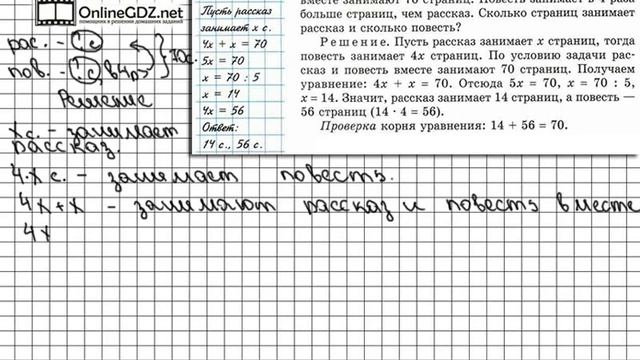 OnlineGDZ.net
помощник в решении домашних задании
Пусть рассказ
занимает x с.
4x + x = 70
5x = 70
x = 70 : 5
x = 14
4x = 56
Ответ:
14 с., 56 с.
вместе занимают 70 страниц. Повесть занимает в 4 раза
больше страниц, чем рассказ. Сколько страниц занимает
рассказ и сколько повесть?
Решение. Пусть рассказ занимает x страниц, тогда
повесть занимает 4x страниц. По условию задачи рас-
сказ и повесть вместе занимают 70 страниц. Получаем
уравнение: 4x + x = 70. Отсюда 5x = 70, x = 70 : 5,
x = 14. Значит, рассказ занимает 14 страниц, а повесть —
56 страниц (14 · 4 = 56).
Проверка корня уравнения: 14 + 56 = 70.
рас. - ?с
пов. - ?с, в 4р> } 70с.
Решение
x с. - занимает
рассказ.
4·x с. - занимает повесть.
4x+x - занимают рассказ и повесть вместе
4x